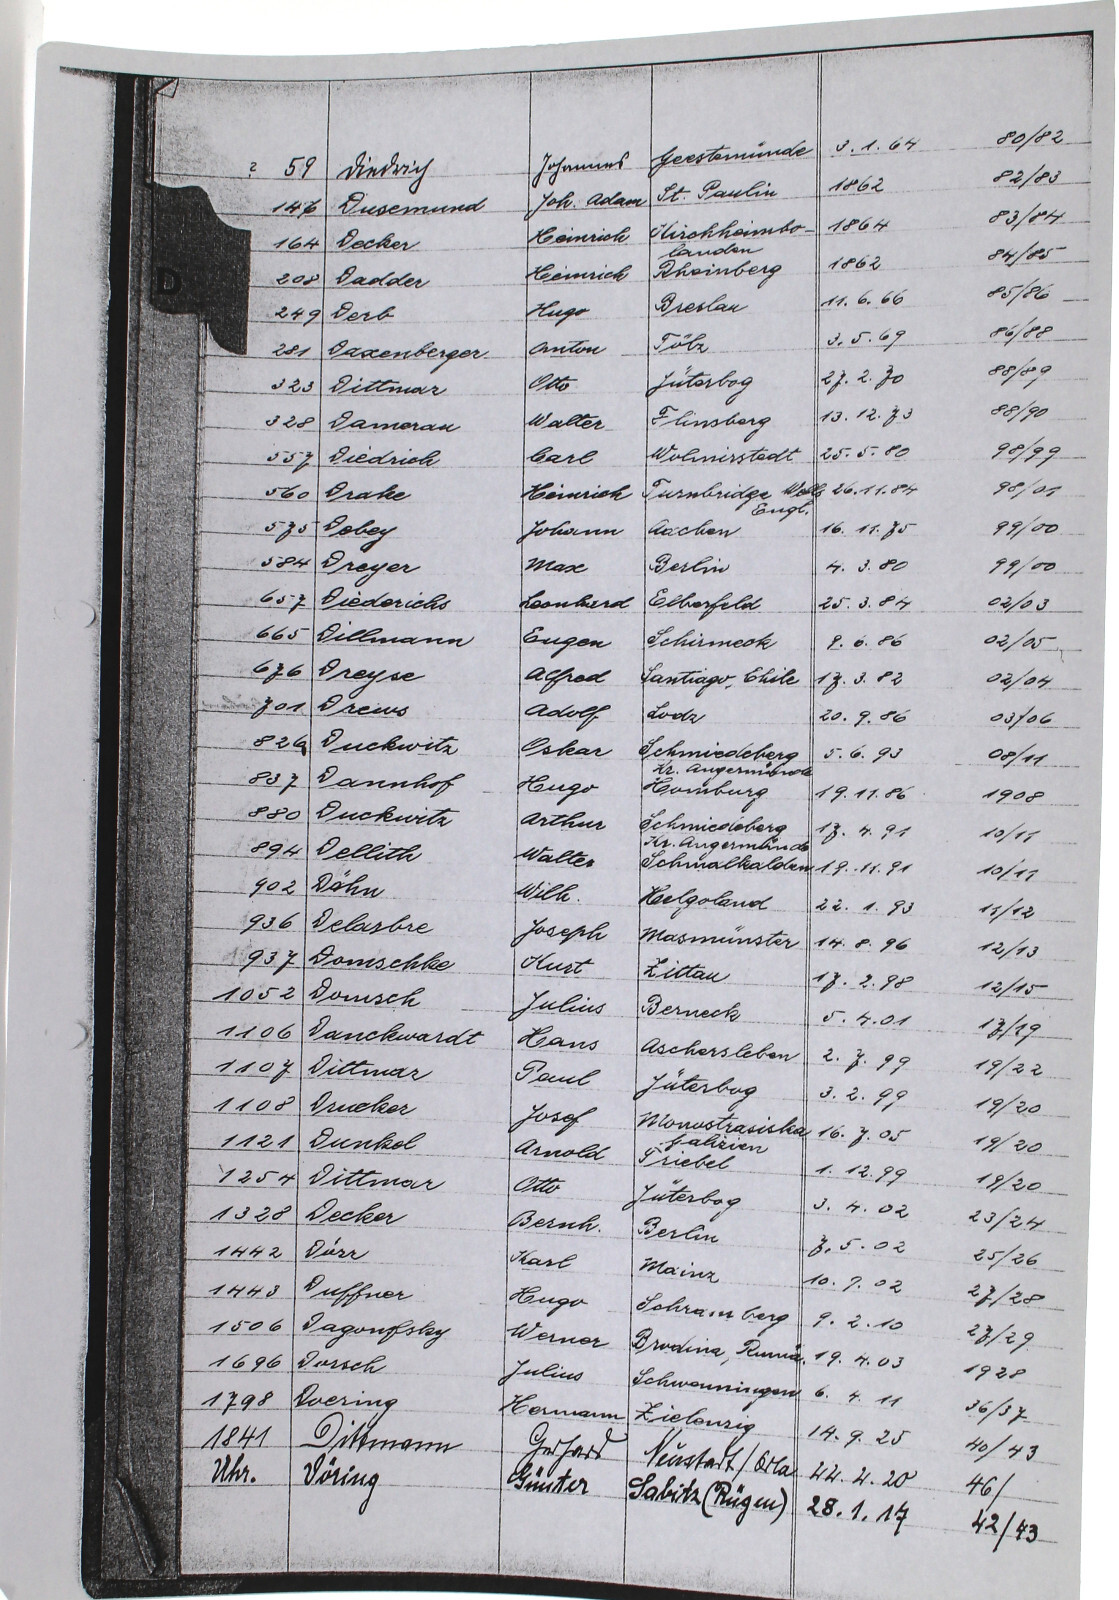 ? 59 Diedrich Johannes Geestemünde 3. 1. 64 80/82
147 Dusemund Joh. Adam St. Paulin 1862 82/83
164 Decker Heinrich Kirchheimbo- 1864 83/84
landen
208 Dadder Heinrich Rheinberg 1862 84/85
249 Derb Hugo Breslau 11. 6. 66 85/86
281 Daxenberger Anton Tölz 3. 5. 69 86/88
323 Dittmar Otto Jüterbog 27. 2. 70 88/89
328 Damerau Walter Flinsberg 13. 12. 73 88/90
557 Diedrich Carl Wolmirstedt 25. 5. 80 98/99
560 Drake Heinrich Turnbridge Wells 26. 11. 84 98/01
Engl.
575 Dobey Johann Aachen 16. 11. 75 99/00
584 Dreyer Max Berlin 4. 3. 80 99/00
657 Diederichs Leonhard Elberfeld 25. 3. 84 02/03
665 Dillmann Eugen Schirmeck 9. 6. 86 02/05
676 Dreyse Alfred Santiago, Chile 17. 3. 82 02/04
701 Drews Adolf Lodz 20. 9. 86 03/06
826a Duckwitz Oskar Schmiedeberg 5. 6. 93 08/11
Kr. Angermünde
837 Dannhof Hugo Homburg 19. 11. 86 1908
880 Duckwitz Arthur Schmiedeberg 17. 4. 91 10/11
Kr. Angermünde
894 Dellith Walter Schmalkalden 19. 11. 91 10/11
902 Döhn Wilh. Helgoland 22. 1. 93 11/12
936 Delarbre Joseph Masmünster 14. 8. 96 12/13
937 Domschke Kurt Zittau 17. 2. 98 12/15
1052 Domsch Julius Berneck 5. 4. 01 17/19
1106 Danckwardt Hans Aschersleben 2. 7. 99 19/22
1107 Dittmar Paul Jüterbog 3. 2. 99 19/20
1108 Drucker Josef Monostrasiska 16. 7. 05 19/20
Galizien
1121 Dunkel Arnold Triebel 1. 12. 99 19/20
1254 Dittmar Otto Jüterbog 3. 4. 02 23/24
1328 Decker Bernh. Berlin 7. 5. 02 25/26
1442 Dörr Karl Mainz 10. 7. 02 27/28
1443 Duffner Hugo Schramberg 9. 2. 10 27/29
1506 Dagonfsky Werner Brodina, Rumä. 19. 4. 03 1928
1696 Dorsch Julius Schwenningen 6. 4. 11 36/37
1798 Doering Hermann Zielenzig 14. 9. 25 40/43
1841 Dittmann Gerhard Neustadt/Orla 20 46/
Uhr. Döring Günter Sabitz (Rügen) 28. 1. 17 42/43
D